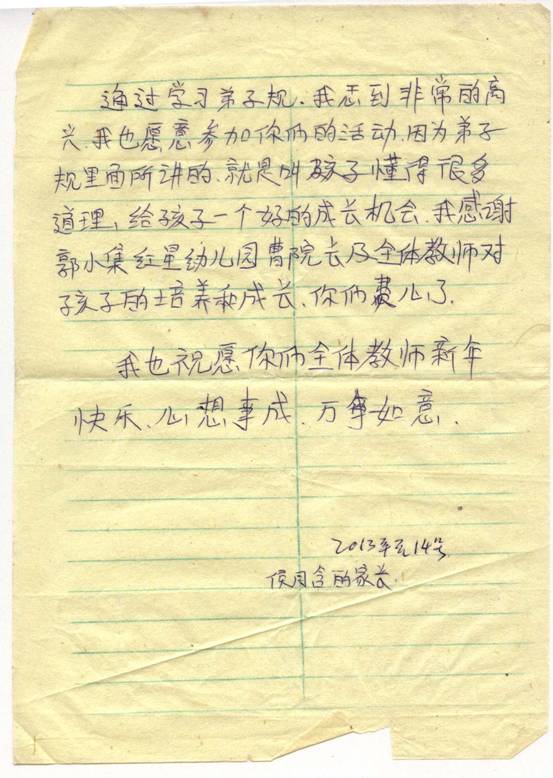 通过学习弟子规.我忎到非常的高
兴.我也愿意参加你们的活动.因为弟子
规里面所讲的.就是叫孩子懂得很多
道理,给孩子一个好的成长机会.我感谢
郭小集红星幼儿园曹院长及全体教师对
孩子的培养和成长.你们费心了.
我也祝愿你们全体教师新年
快乐、心想事成.万事如意.
2013年元14号
侯月含的家长.